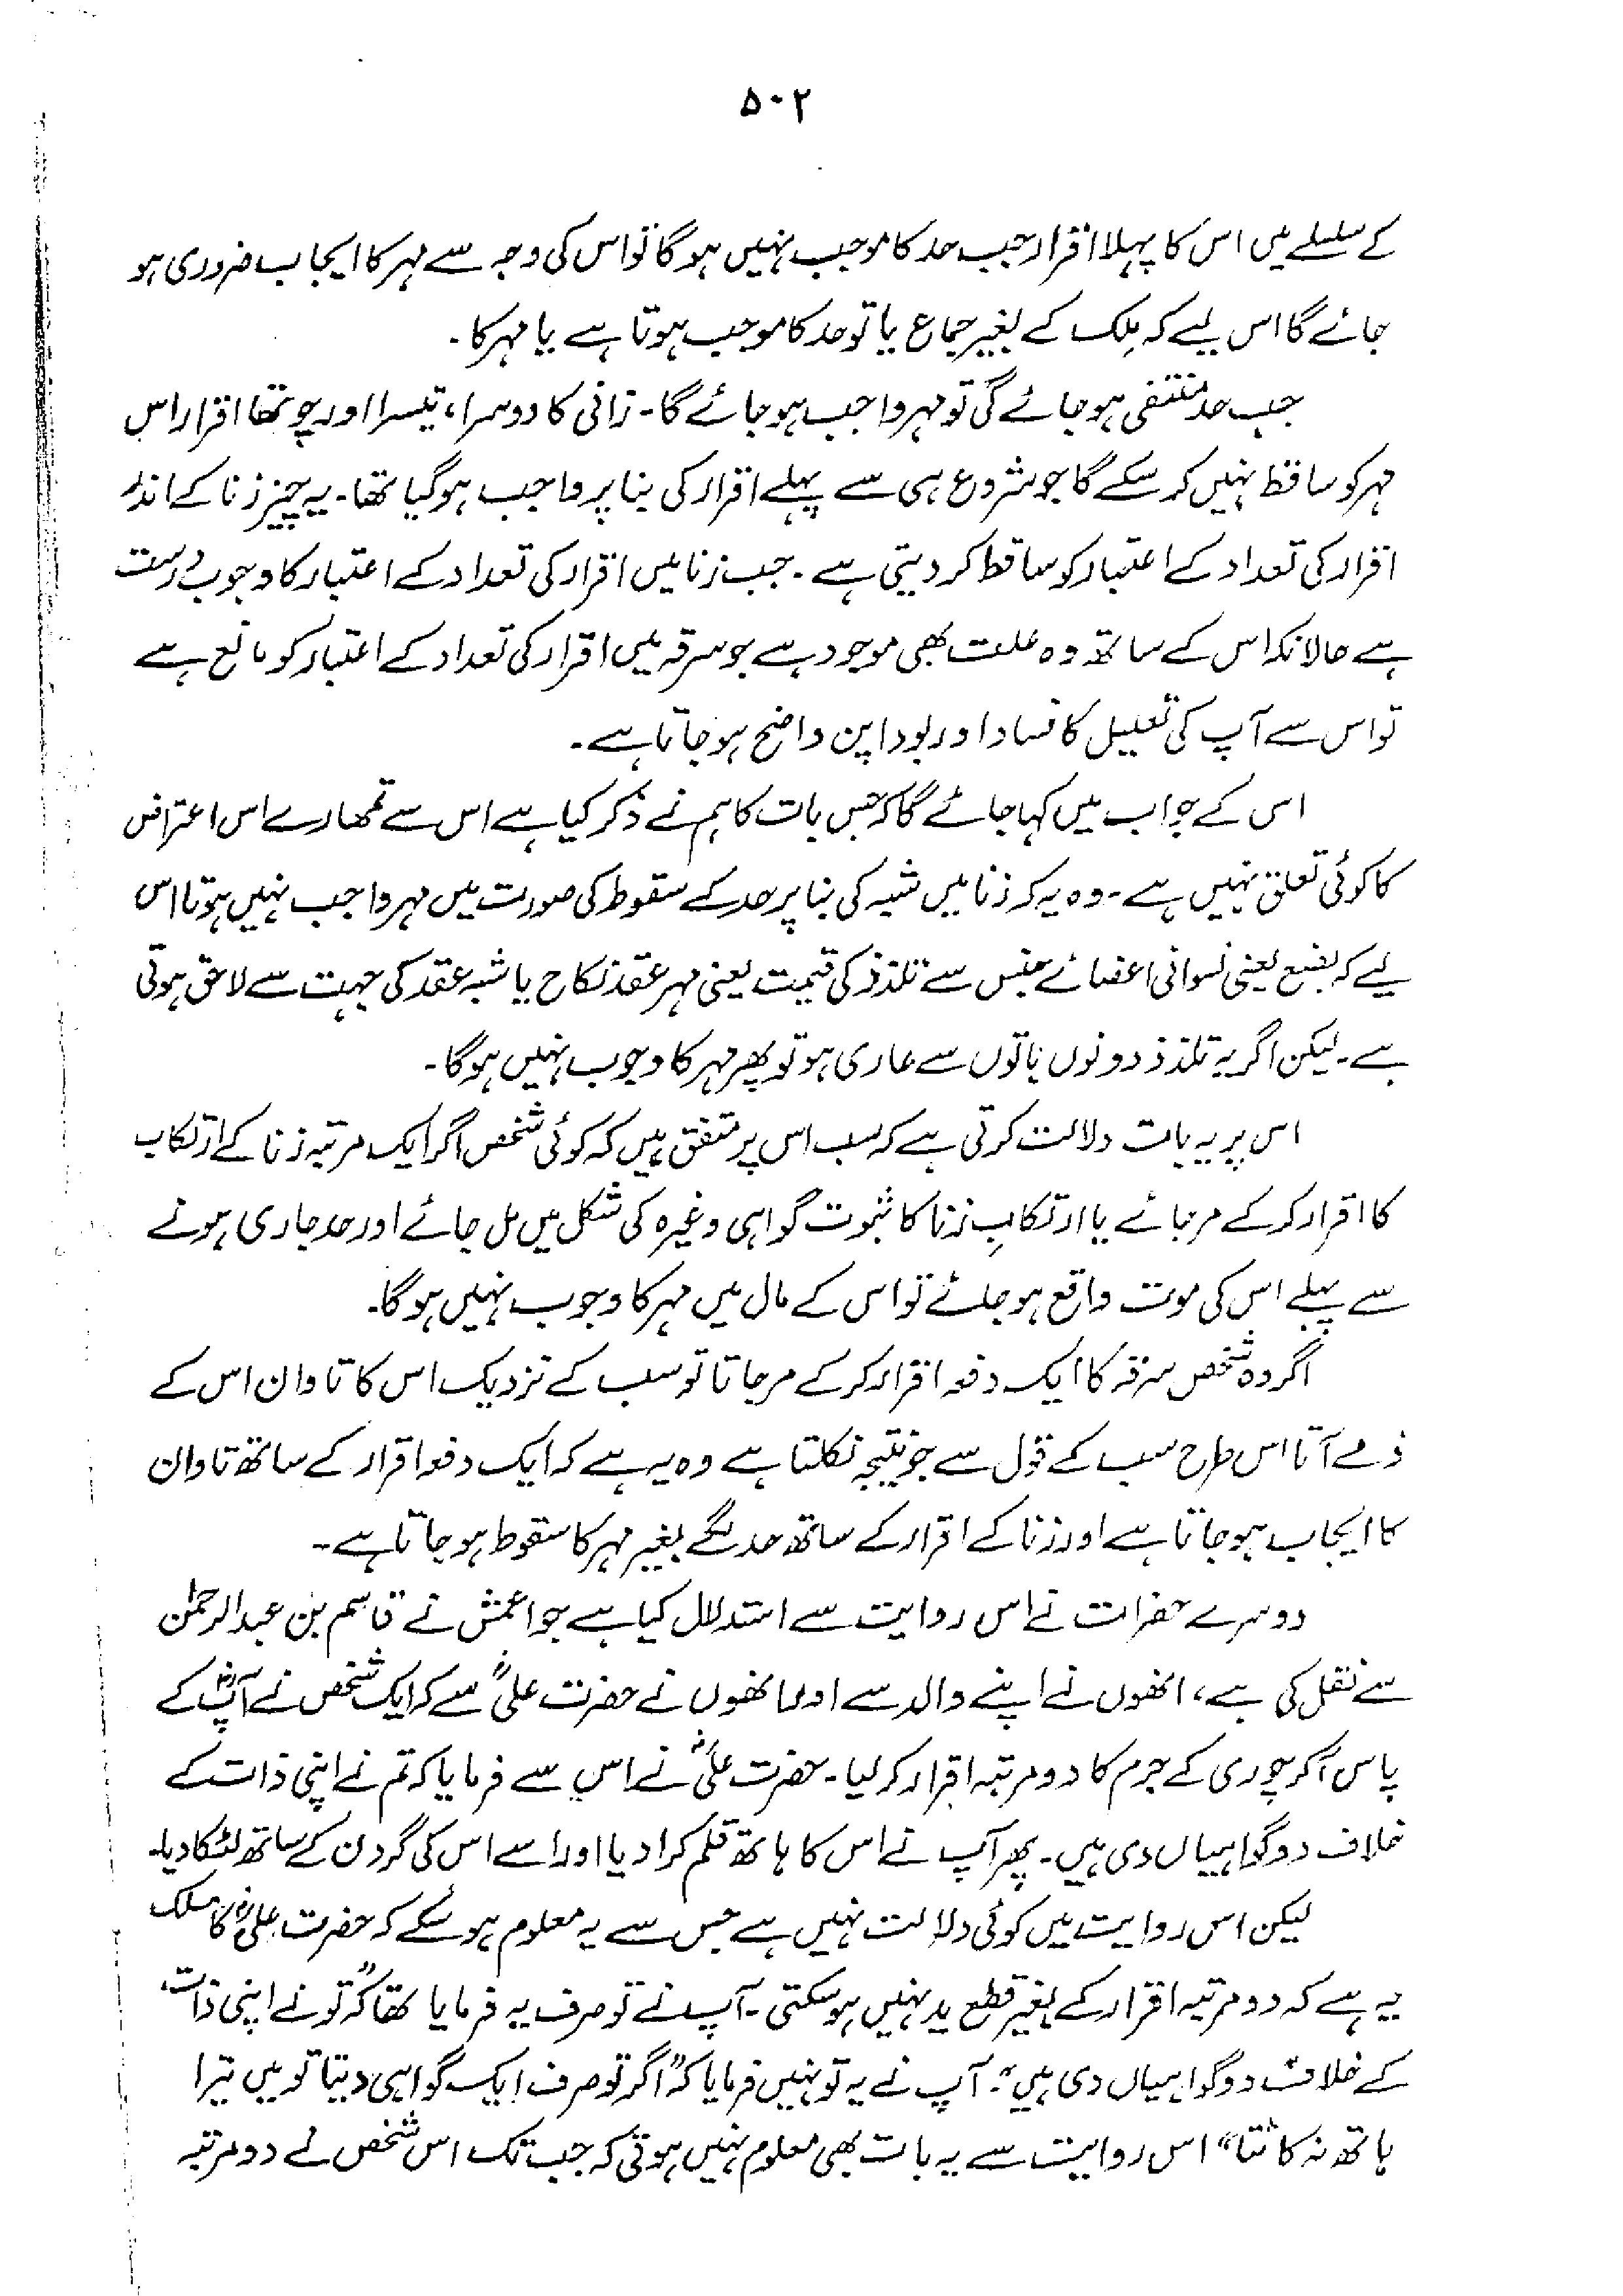 ۵۰۲
کے سلسلے میں اس کا پہلا اقرار جب حد کا موجب نہیں ہوگا تو اس کی وجہ سے مہر کا ایجاب ضروری ہو
جائے گا اس لیے کہ مِلک کے بغیر جماع یا تو حد کا موجب ہوتا ہے یا مہر کا۔
جب حد منتفی ہو جائے گی تو مہر واجب ہو جائے گا۔ زانی کا دوسرا، تیسرا اور چوتھا اقرار اس
مہر کو ساقط نہیں کر سکے گا جو شروع ہی سے پہلے اقرار کی بنا پر واجب ہوگیا تھا۔ یہ چیز زنا کے اندر
اقرار کی تعداد کے اعتبار کو ساقط کر دیتی ہے۔ جب زنا میں اقرار کی تعداد کے اعتبار کا وجوب درست
ہے حالانکہ اس کے ساتھ وہ علت بھی موجود ہے جو سرقہ میں اقرار کی تعداد کے اعتبار کو مانع ہے
تو اس سے آپ کی تعلیل کا فساد اور بودا پن واضح ہو جاتا ہے۔
اس کے جواب میں کہا جائے گا کہ جس بات کا ہم نے ذکر کیا ہے اس سے تمھارے اس اعتراض
کا کوئی تعلق نہیں ہے۔ وہ یہ کہ زنا میں شبہ کی بنا پر حد کے سقوط کی صورت میں مہر واجب نہیں ہوتا اس
لیے کہ بضع یعنی نسوانی اعضائے جنس سے تلذذ کی قیمت یعنی مہر عقد نکاح یا شبہ عقد کی جہت سے لاحق ہوتی
ہے۔ لیکن اگر یہ تلذذ دونوں باتوں سے عاری ہو تو پھر مہر کا وجوب نہیں ہوگا۔
اس پر یہ بات دلالت کرتی ہے کہ سب اس پر متفق ہیں کہ کوئی شخص اگر ایک مرتبہ زنا کے ارتکاب
کا اقرار کر کے مر جائے یا ارتکابِ زنا کا ثبوت گواہی وغیرہ کی شکل میں مل جائے اور حد جاری ہونے
سے پہلے اس کی موت واقع ہو جائے تو اس کے مال میں مہر کا وجوب نہیں ہوگا۔
اگر وہ شخص سرقہ کا ایک دفعہ اقرار کر کے مر جاتا تو سب کے نزدیک اس کا تاوان اس کے
ذمے آتا اس طرح سب کے قول سے جو نتیجہ نکلتا ہے وہ یہ ہے کہ ایک دفعہ اقرار کے ساتھ تاوان
کا ایجاب ہو جاتا ہے اور زنا کے اقرار کے ساتھ حد لگے بغیر مہر کا سقوط ہو جاتا ہے۔
دوسرے حضرات نے اس روایت سے استدلال کیا ہے جو اعمش نے قاسم بن عبدالرحمٰن
سے نقل کی ہے، انھوں نے اپنے والد سے اور انھوں نے حضرت علیؓ سے کہ ایک شخص نے آپؓ کے
پاس آکر چوری کے جرم کا دو مرتبہ اقرار کر لیا۔ حضرت علیؓ نے اس سے فرمایا کہ تم نے اپنی ذات کے
خلاف دو گواہیاں دی ہیں۔ پھر آپ نے اس کا ہاتھ قلم کرا دیا اور اسے اس کی گردن کے ساتھ لٹکا دیا۔
لیکن اس روایت میں کوئی دلالت نہیں ہے جس سے یہ معلوم ہو سکے کہ حضرت علیؓ کا مسلک
یہ ہے کہ دو مرتبہ اقرار کے بغیر قطع ید نہیں ہو سکتی۔ آپ نے تو صرف یہ فرمایا تھا کہ "تو نے اپنی ذات
کے خلاف دو گواہیاں دی ہیں"۔ آپ نے یہ تو نہیں فرمایا کہ "اگر تو صرف ایک گواہی دیتا تو میں تیرا
ہاتھ نہ کاٹتا" اس روایت سے یہ بات بھی معلوم نہیں ہوتی کہ جب تک اس شخص نے دو مرتبہ